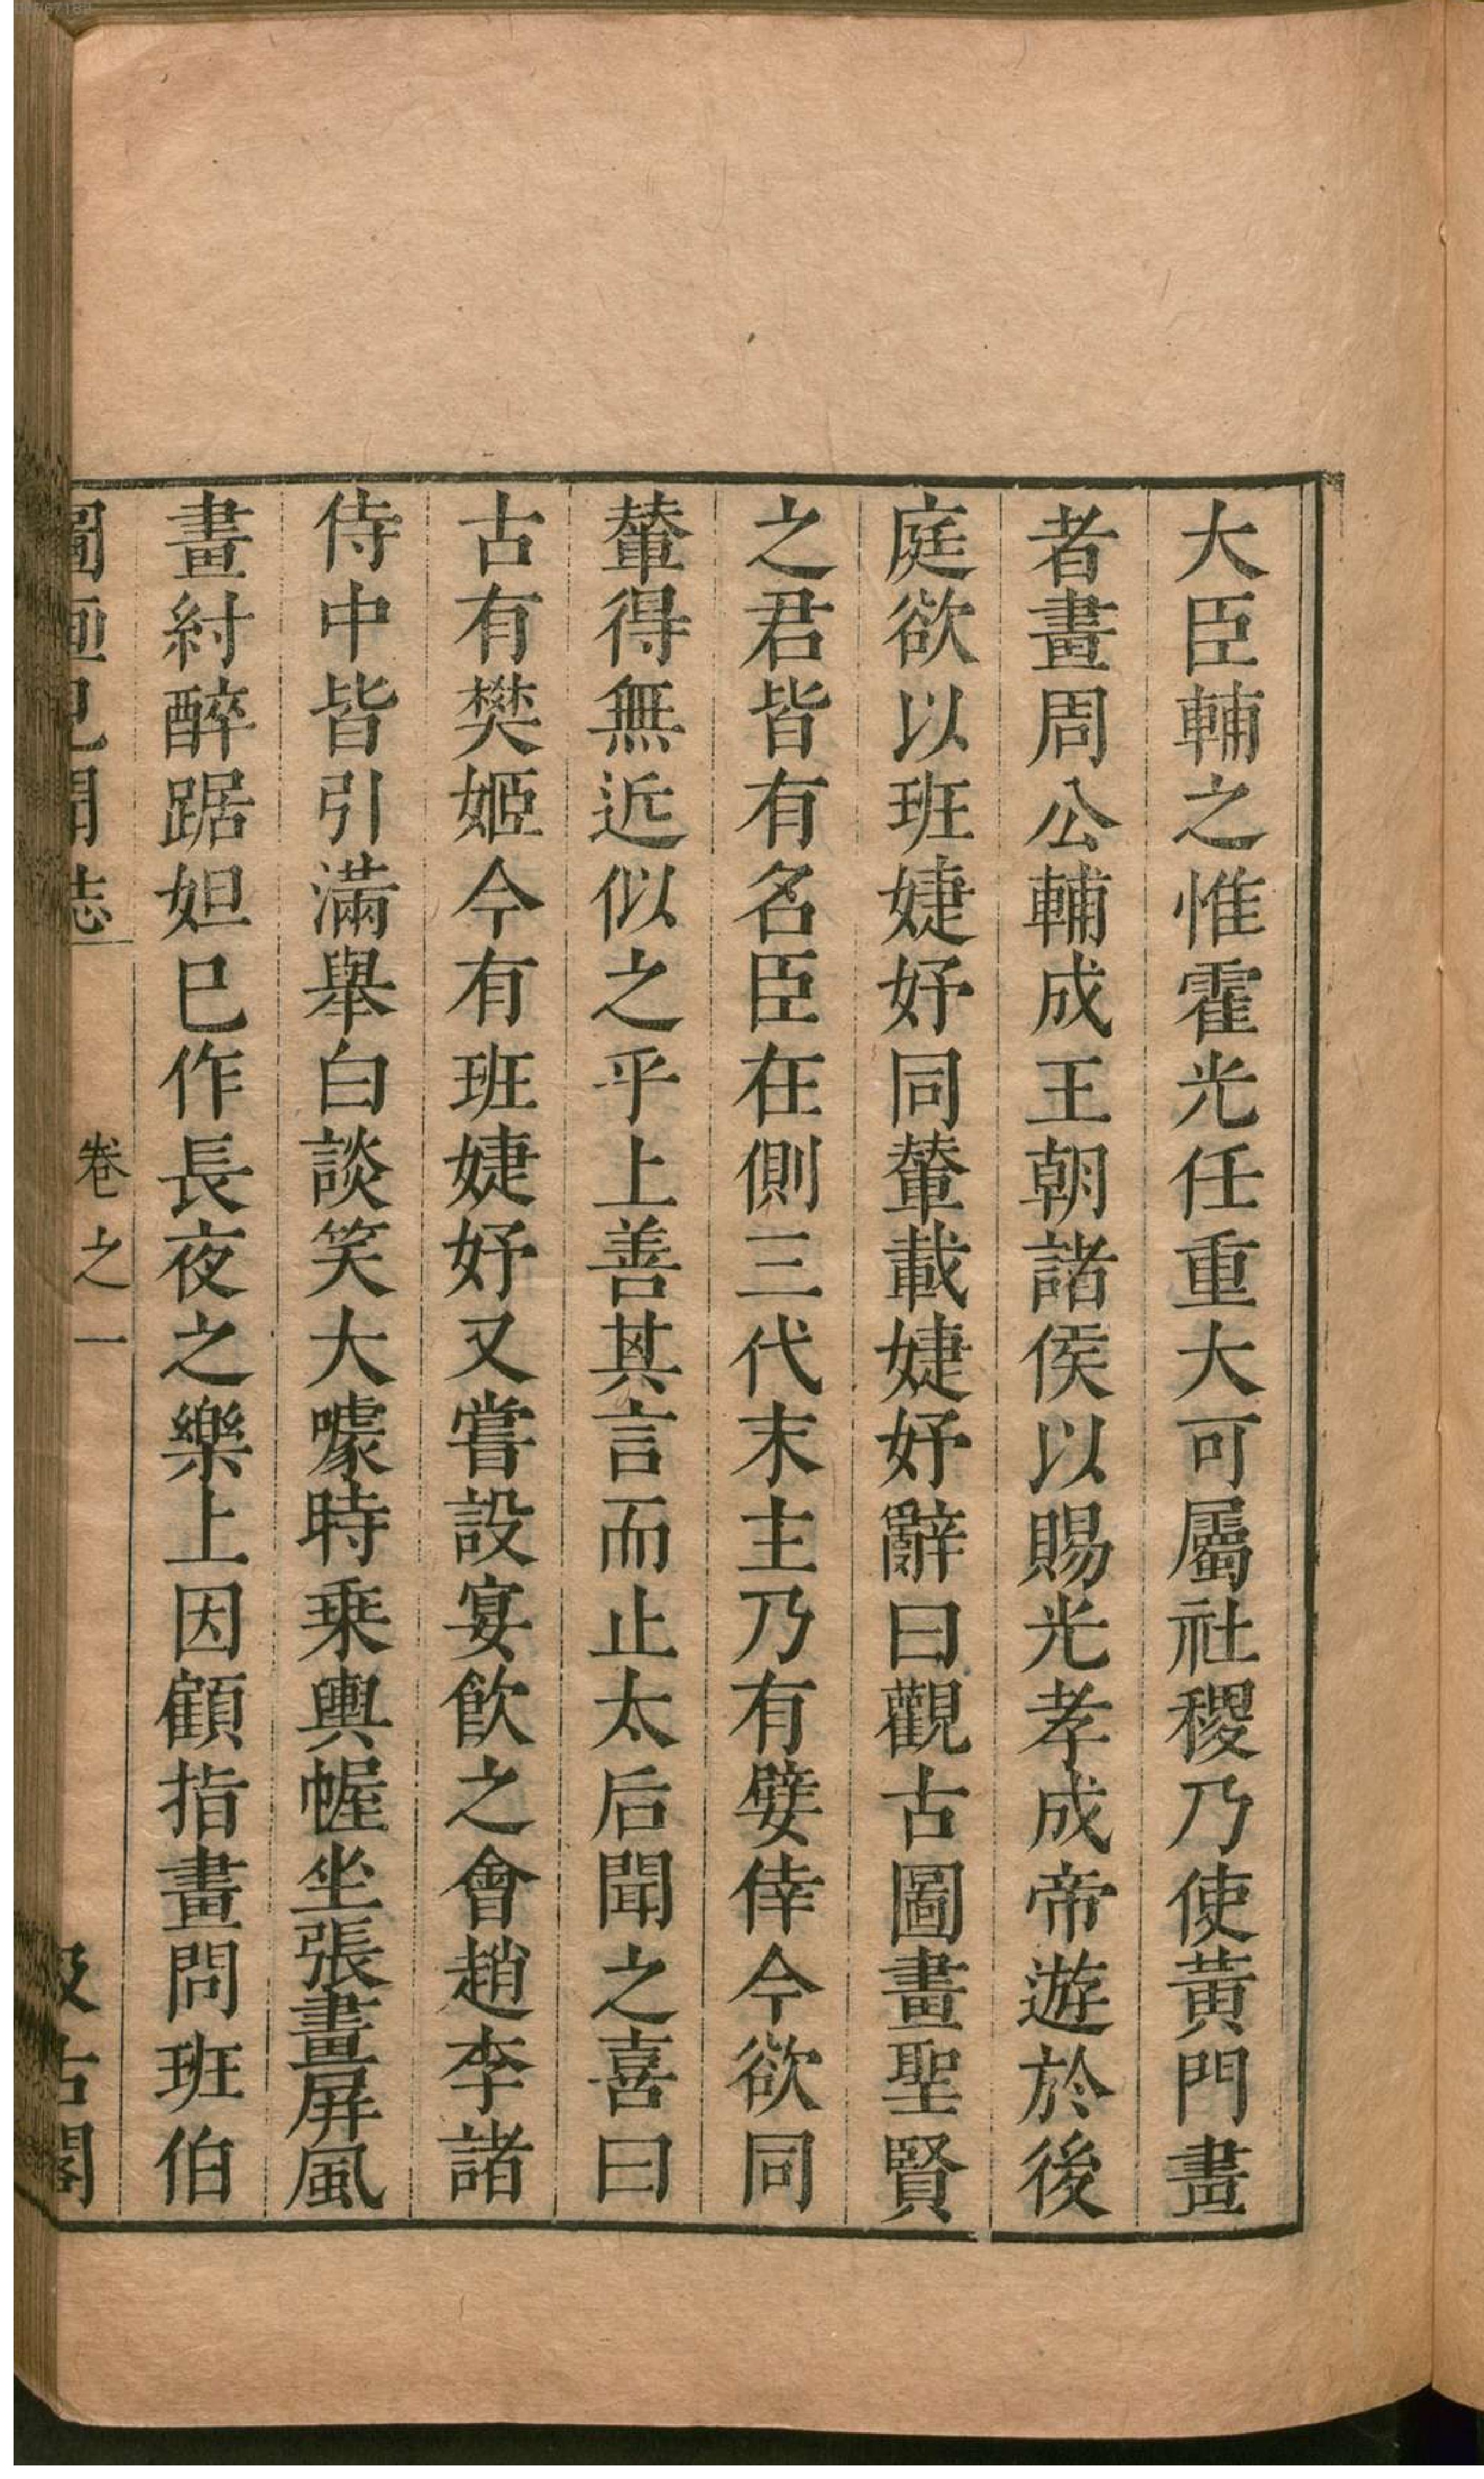 大臣輔之惟霍光任重大可屬社稷乃使黃門畫
者畫周公輔成王朝諸侯以賜光孝成帝遊於後
庭欲以班婕妤同輦載婕妤辭曰觀古圖畫聖賢
之君皆有名臣在側三代末主乃有嬖倖今欲同
輦得無近似之乎上善其言而止太后聞之喜曰
古有樊姬今有班婕妤又嘗設宴飲之會趙李諸
侍中皆引滿舉白談笑大噱時乗輿幄坐張畫屏風
畫紂醉踞妲巳作長夜之樂上因顧指畫問班伯
圖畫見聞誌 卷之一 汲古閣